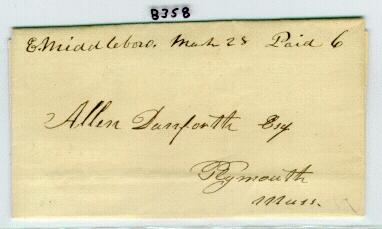 8358
E. Middleboro. Mah 28 Paid 6
Allen Danforth Esq
Plymouth
Mass.